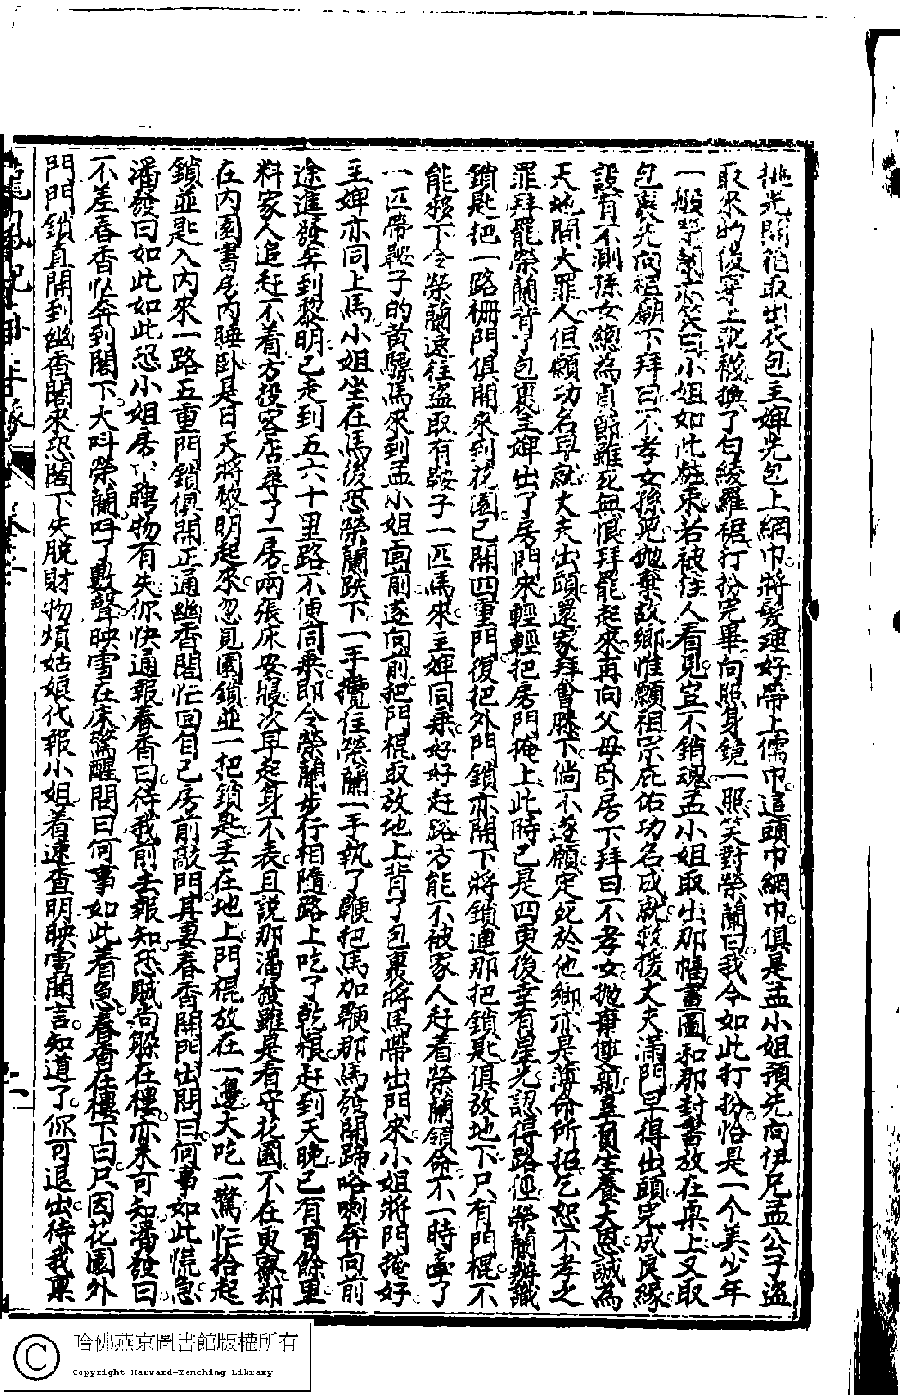 挑光開箱取出衣包主婢先包上網巾將髮理好帶上儒巾這頭巾網巾俱是孟小姐預先向伊兄孟公子盜
取來的後穿上靴襪換了白綾羅裙打扮完畢向照身鏡一照笑對榮蘭曰我今如此打扮恰是一个美少年
一般榮蘭亦笑曰小姐如此粧束若被佳人看見豈不銷魂孟小姐取出那幅畫圖和那封書放在桌上又取
包裹先向祖廟下拜曰不孝女孫兒抛棄故鄉惟願祖宗庇佑功名成就救援丈夫滿門早得出頭完成良緣
設有不測孫女總為貞節雖死無恨拜罷起來再向父母卧房下拜曰不孝女抛棄雙親辜負生養大恩誠為
天地間大罪人但願功名早就丈夫出頭還家拜會膝下倘不遂願定死於他鄉亦是薄命所招乞恕不孝之
罪拜罷榮蘭背了包裹主婢出了房門來輕輕把房門掩上此時已是四更後幸有星光認得路徑榮蘭辦識
鎖匙把一路柵門俱開來到花園已開四重門復把外門鎖亦開下將鎖連那把鎖匙俱放地下只有門棍不
能移下令榮蘭速往盜取有鞍子一匹馬來主婢同乘好好赶路方能不被家人赶着榮蘭領命不一時盜了
一匹帶鞍子的黃驃馬來到孟小姐面前遂向前把門棍取放地上背了包裹將馬帶出門來小姐將門掩好
主婢亦同上馬小姐坐在馬後恐榮蘭跌下一手攬住榮蘭一手執了鞭把馬加鞭那馬發開蹄咯喇奔向前
途進發奔到黎明已走到五六十里路不便同乘即令榮蘭步行相隨路上吃了乾粮赶到天晚已有百餘里
料家人追赶不着方投客店尋了一房兩張床安寢次早起身不表且說那潘發雖是看守花園不在更寮却
在內園書房內睡卧是日天將黎明起來忽見園鎖並一把鎖匙丟在地上門棍放在一邊大吃一驚忙拾起
鎖並匙入內來一路五重門鎖俱開正通幽香閣忙回自己房前敲門其妻春香開門出問曰何事如此慌急
潘發曰如此如此恐小姐房內睛物有失你快通報春香曰待我前去報知恐賊尚躲在樓亦未可知潘發曰
不差春香忙奔到閣下大呌榮蘭呌了數聲映雪在床驚醒問曰何事如此着急春香在樓下曰只因花園外
門門鎖直開到幽香閣來恐閣下失脫財物煩姑娘代報小姐着速查明映雪聞言知道了你可退出待我稟
龍鳳配
卷二
哈佛燕京圖書館版權所有
Copyright Harvard-Yenching Library